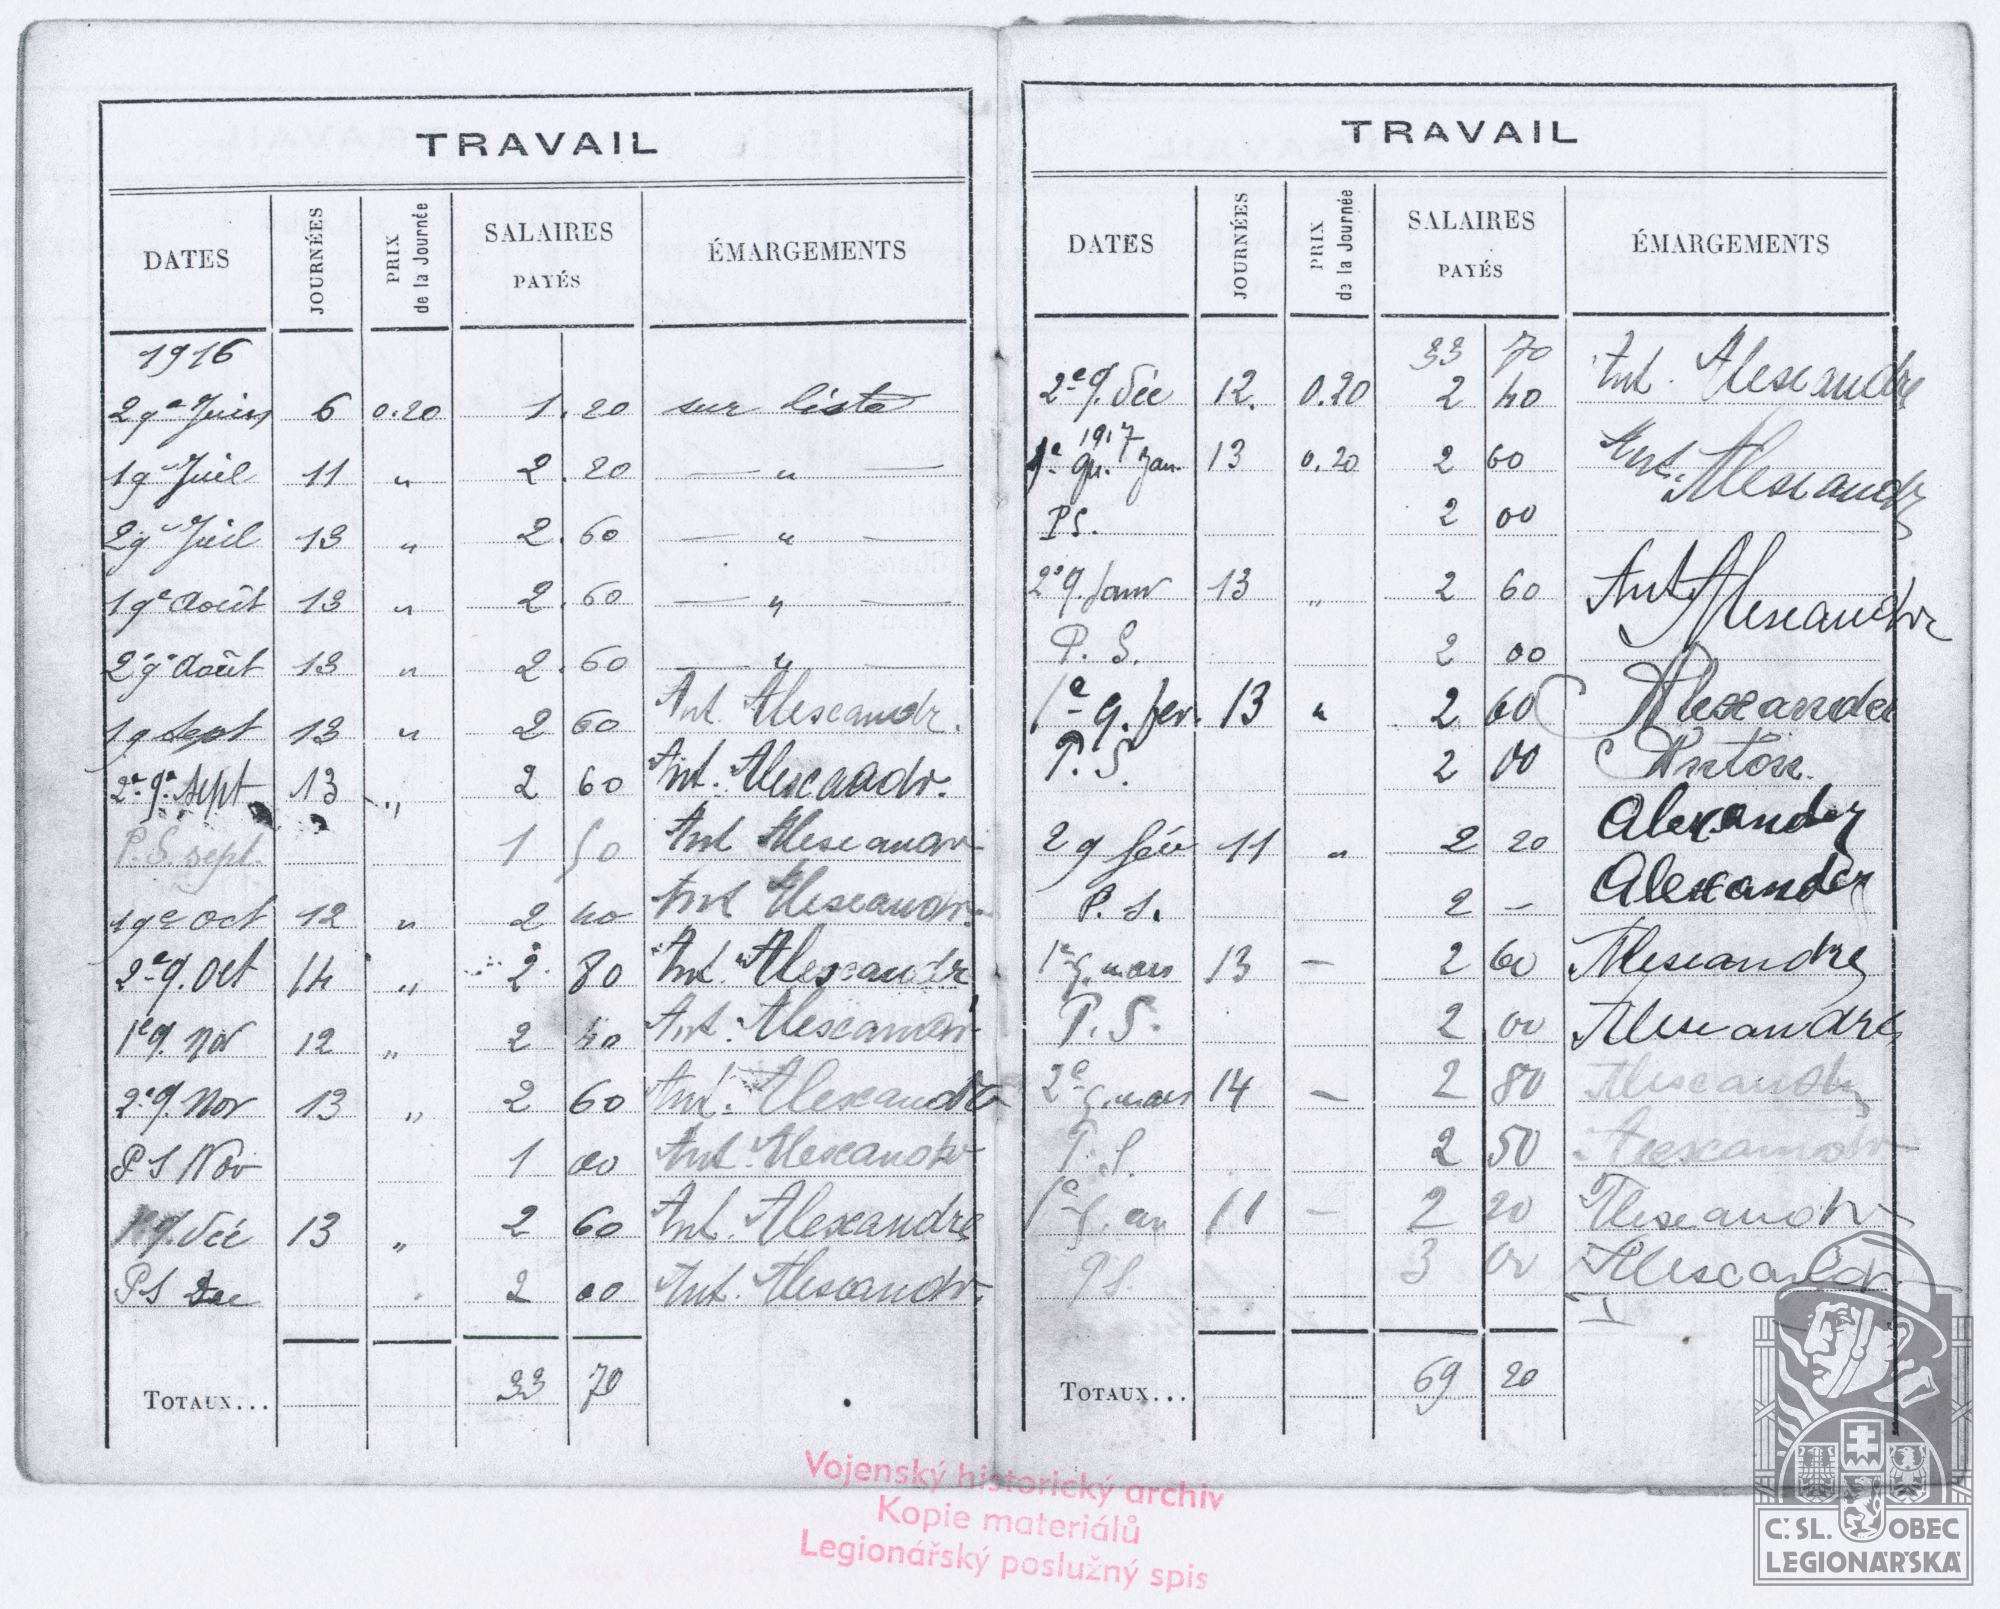 TRAVAIL
DATES JOURNÉES PRIX de la Journée SALAIRES PAYÉS ÉMARGEMENTS
1916
2 qe Juin 6 0.20 1.20 sur liste
1 q Juil 11 " 2.20 — " —
2 q Juil 13 " 2.60 — " —
1 qe Août 13 " 2.60 — " —
2 q Août 13 " 2.60 — " —
1 q Sept 13 " 2 60 Ant Alexandr.
2e q. Sept 13 " 2 60 Ant. Alexandr.
P. S. sept. 1 50 Ant Alexandr
1 qe Oct 12 " 2 40 Ant Alexandr.
2e q. Oct 14 " 2 80 Ant. Alexandr
1e q. Nov 12 " 2 40 Ant. Alexandr
2e q. Nov 13 " 2 60 Ant. Alexandr
P S Nov 1 00 Ant. Alexandr
1e q. Déc 13 " 2 60 Ant. Alexandre
P S Dec 2 00 Ant. Alexandr.
TOTAUX... 33 70
TRAVAIL
DATES JOURNÉES PRIX de la Journée SALAIRES PAYÉS ÉMARGEMENTS
33 70
2e q. Déc 12. 0.20 2 40 Ant. Alexandre
1917
1e q. Jan 13 0.20 2 60 Ant. Alexandr
P S. 2 00
2e q. Janv 13 " 2 60 Ant Alexandr
P. S. 2 00
1e q. fev. 13 " 2 60 Alexander
P. S. 2 00 Anton
2 q fév 11 " 2 20 Alexander
P. S. 2 — Alexander
1e q. mars 13 — 2 60 Alexandre
P. S. 2 00 Alexandre
2e q. mars 14 — 2 80 Alexandr
P. S. 2 50 Alexandr
1e q. 11 — 2 20 Alexandr
P S. 3 00 Alexandr
TOTAUX... 69 20
Vojenský historický archiv
Kopie materiálů
Legionářský poslužný spis
Č. SL. OBEC
LEGIONÁŘSKÁ